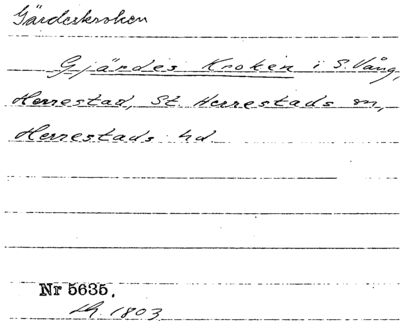 Gärdeskroken
Gjärdes Kroken i S. Vång,
Herrestad, St Herrestads sn,
Herrestads hd
Nr 5635.
LA. 1803